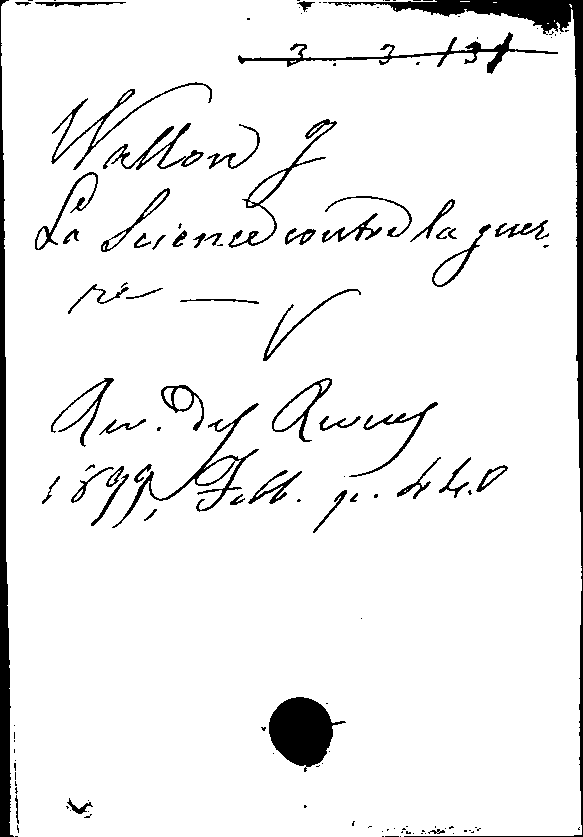 3. 3. 131
Wallon J
La Science contre la guer.
re — V
Rev. des Revues
1899, Febb. p. 440